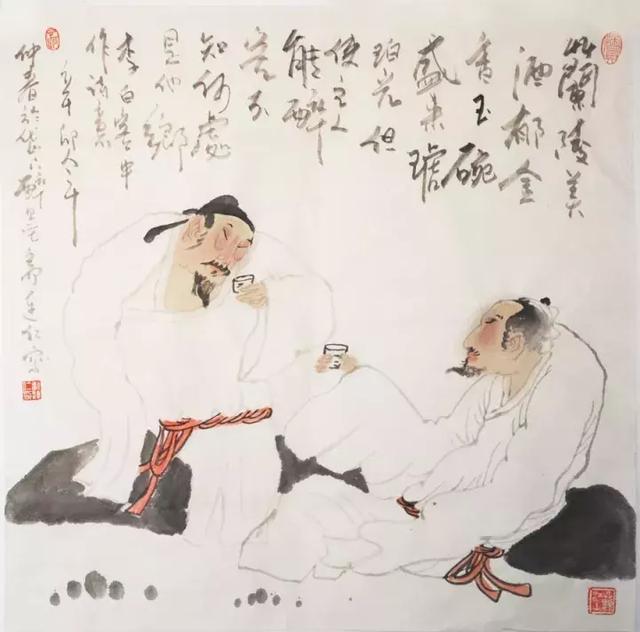 蘭陵美
酒郁金
香玉碗
盛来琥
珀光但
使主人
能醉
客不
知何處
是他鄉
李白客中
作詩意
仲春於